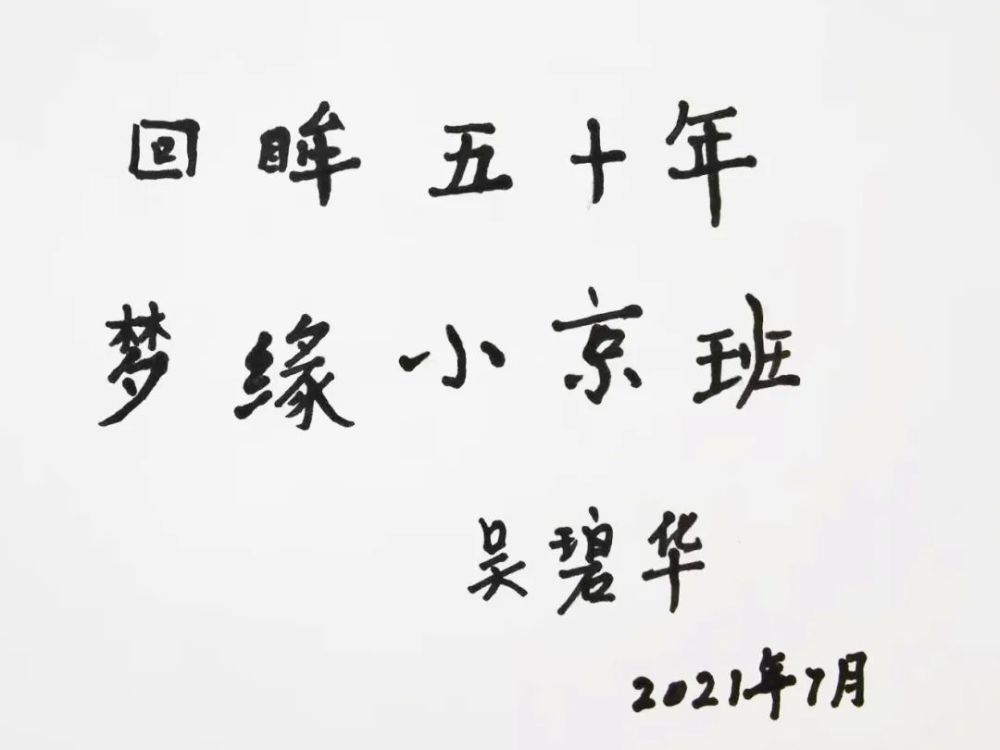 回眸五十年
梦缘小京班
吴碧华
2021年7月